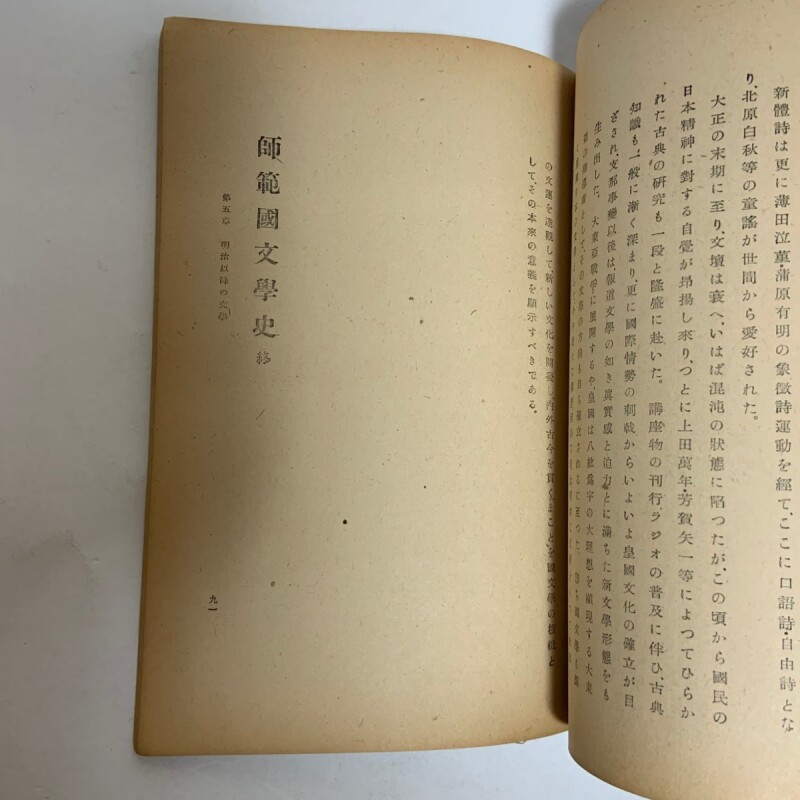 新體詩は更に薄田泣菫・蒲原有明の象徴詩運動を經て、ここに口語詩・自由詩とな
り、北原白秋等の童謠が世間から愛好された。
大正の末期に至り、文壇は衰へ、いはば混沌の狀態に陷つたが、この頃から國民の
日本精神に對する自覺が昂揚し來り、つとに上田萬年・芳賀矢一等によつてひらか
れた古典の研究も一段と隆盛に赴いた。講座物の刊行、ラジオの普及に伴ひ、古典
知識も、一般に漸く深まり、更に國際情勢の刺戟からいよいよ皇國文化の確立が目
ざされ、支那事變以後は、報道文學の如き眞實感と迫力とに滿ちた新文學形態をも
生み出した。大東亞戰爭に展開するや、皇國は八紘爲宇の大理想を顯現する大東
として、その文學の方向も自ら確立されるに至つた。卽ち國文學も
の文運を進展して、新しい文化を開發し、內外古今を貫くまことを國文學の と
して、その本來の意義を顯示すべきである。
師範國文學史 終
第五章 明治以降の文學
九一